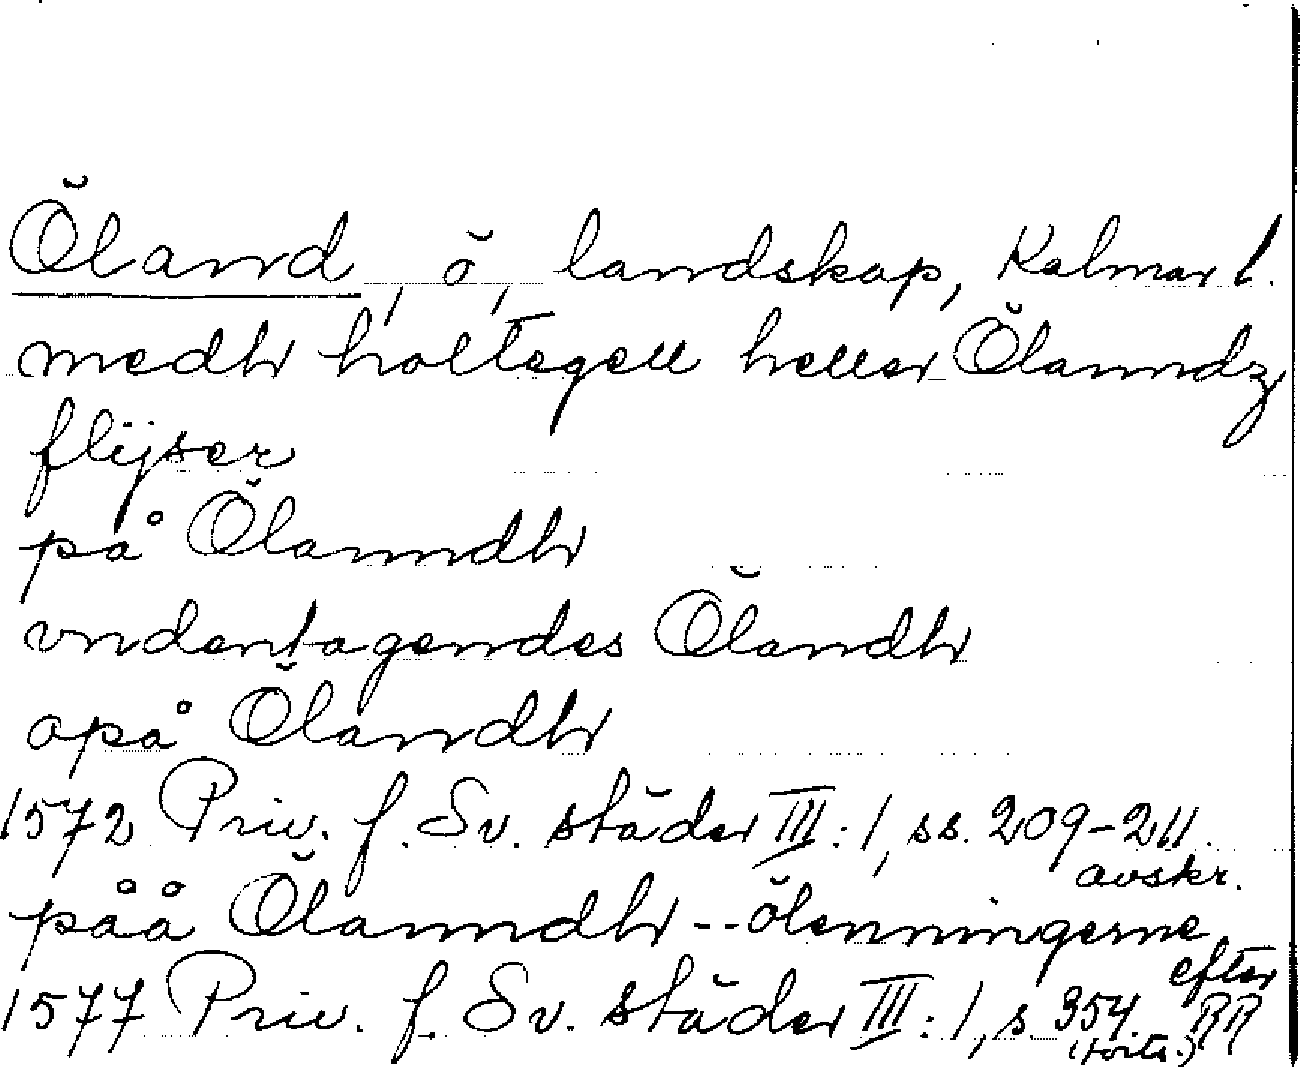 Öland, ö, landskap, Kalmar l.
medh holtegell heller Ölanndz
flijser
på Ölanndh
vndentagendes Ölandh
apå Ölandh
1572 Priv. f. Sv. städer III:1, ss. 209-211.
avskr.
påå Ölanndh -- ölenningerne
1577 Priv. f. Sv. städer III:1, s. 354. efter RR
(forts.)